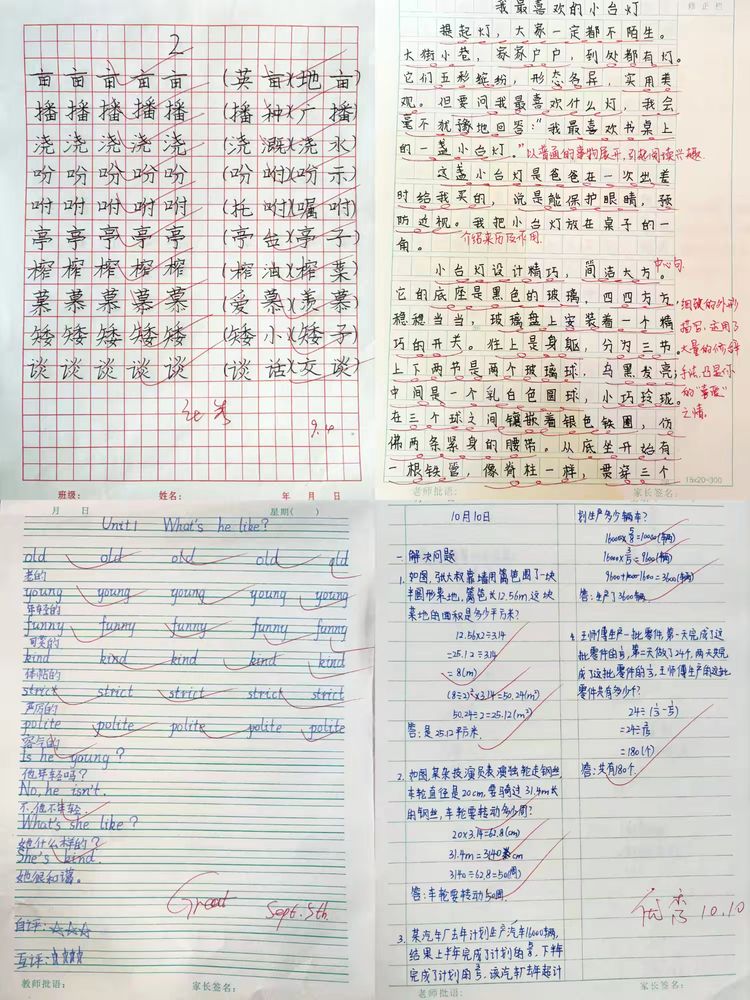 2
亩 亩 亩 亩 亩 (英亩)(地亩)
播 播 播 播 播 (播种)(广播)
浇 浇 浇 浇 浇 (浇溉)(浇水)
吩 吩 吩 吩 吩 (吩咐)(吩示)
咐 咐 咐 咐 咐 (托咐)(嘱咐)
亭 亭 亭 亭 亭 (亭台)(亭子)
榨 榨 榨 榨 榨 (榨油)(榨菜)
慕 慕 慕 慕 慕 (爱慕)(羡慕)
矮 矮 矮 矮 矮 (矮小)(矮子)
谈 谈 谈 谈 谈 (谈话)(交谈)
9.4
班级: 姓名: 年 月 日
我最喜欢的小台灯
修正栏
提起灯,大家一定都不陌生。
大街小巷,家家户户,到处都有灯。
它们五彩缤纷,形态各异,实用美
观。但要问我最喜欢什么灯,我会
毫不犹豫地回答:“我最喜欢书桌上
的一盏小台灯。”
以普通的事物展开,引起阅读兴趣.
这盏小台灯是爸爸在一次出差
时给我买的,说是能保护眼睛,预
防近视。我把小台灯放在桌子的一
角。
介绍来历及作用.
小台灯设计精巧,简洁大方。
中心句.
它的底座是黑色的玻璃,四四方方,
稳稳当当,玻璃盘上安装着一个精
巧的开关。往上是身躯,分为三节。
上下两节是两个玻璃球,乌黑发亮;
中间是一个乳白色圆球,小巧玲珑。
在三个球之间镶嵌着银色铁圈,仿
佛两条紧身的腰带。从底座开始有
一根铁管,像脊柱一样,贯穿三个
细致的外形
描写,运用了
大量的修辞
手法,凸显你
的“喜爱”
之情.
15x20=300
老师批语: 家长签名:
月 日 星期( )
Unit1 What's he like?
old old old old old
老的
young young young young young
年轻的
funny funny funny funny funny
可笑的
kind kind kind kind kind
体贴的
strict strict strict strict strict
严厉的
polite polite polite polite polite
客气的
Is he young?
他年轻吗?
No, he isn't.
不,他不年轻.
What's she like?
她什么样的?
She's kind.
她很和蔼。
Great Sept. 5th.
自评:☆☆☆
互评:☆☆☆
教师批语: 家长签名:
10月10日
一 解决问题
1. 如图,张大叔靠墙用篱笆围了一块
半圆形菜地,篱笆长12.56m,这块
菜地的面积是多少平方米?
12.56×2÷3.14
=25.12÷3.14
=8(m)
(8÷2)²×3.14=50.24(m²)
50.24÷2=25.12(m²)
答:是25.12平方米.
2. 如图,某杂技演员表演独轮走钢丝,
车轮直径是20cm,要骑过31.4m长
的钢丝,车轮要转动多少周?
20×3.14=62.8(cm)
31.4m=3140cm
3140÷62.8=50(周)
答:车轮要转动50周.
3. 某汽车厂去年计划生产汽车16000辆,
结果上半年完成了计划的5/8,下半年
完成了计划的3/5,该汽车厂去年超计
划生产多少辆车?
16000×5/8=10000(辆)
16000×3/5=9600(辆)
9600+10000-16000=3600(辆)
答:生产了3600辆.
4. 王师傅生产一批零件,第一天完成了这
,第二天做了24个,两天共完
,王师傅生产的这批
零件共有多少个?
=180(个)
答:共有180个.
优秀 10.10
老师批语: 家长签名: